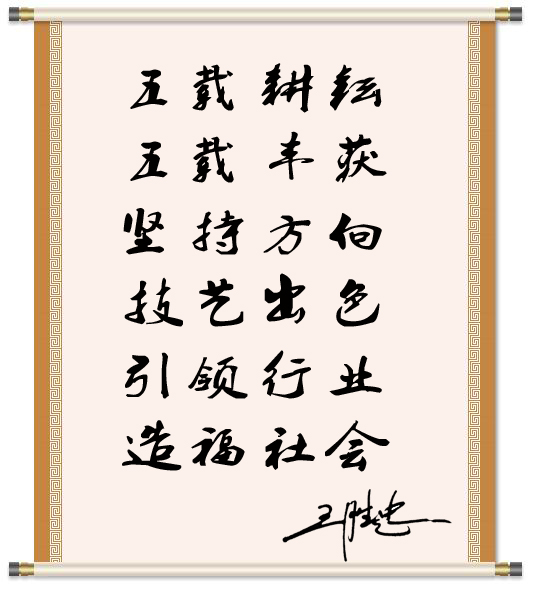 五载耕耘
五载丰获
坚持方向
技艺出色
引领行业
造福社会
王胜忠